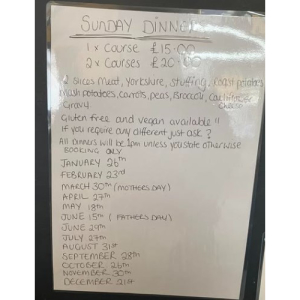 SUNDAY DINNER
1 x Course £15.00
2 x Courses £20.00
2 slices meat, Yorkshire, stuffing, roast potatoes
mush potatoes, carrots, peas, Broccoli, Cauliflower
Cheese
Gravy
Gluten free and vegan available !!
If you require any different just ask ?
All Dinners will be 1pm unless you state otherwise
BOOKING ONLY
JANUARY 26th
FEBRUARY 23rd
MARCH 30th (MOTHERS DAY)
APRIL 27th
MAY 18th
JUNE 15th ( FATHERS DAY)
JUNE 29th
JULY 27th
AUGUST 31st
SEPTEMBER 28th
OCTOBER 26th
NOVEMBER 30th
DECEMBER 21st